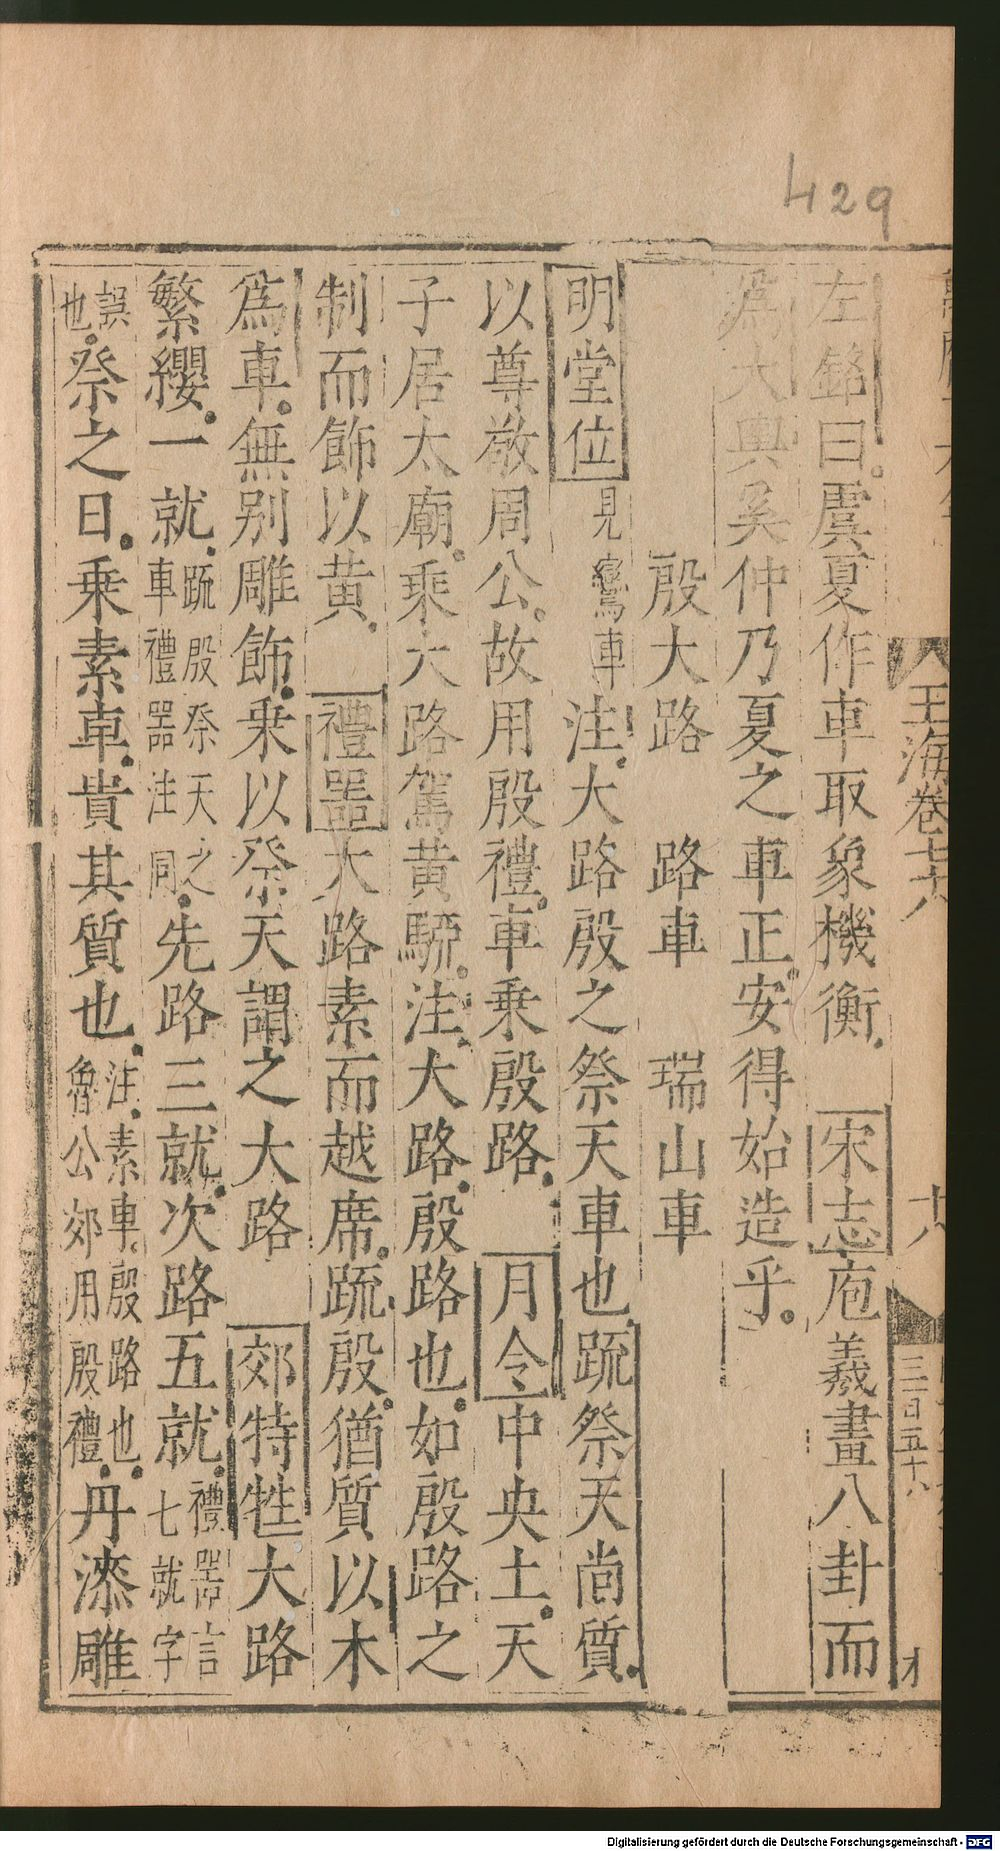 429
玉海卷七十八
十八
三百五十八
才
左銘曰虞夏作車取象機衡 宋志庖羲畫八卦而
爲大輿奚仲乃夏之車正安得始造乎
殷大路 路車 瑞山車
明堂位見鸞車注大路殷之祭天車也䟽祭天尚質
以尊敬周公故用殷禮車乗殷路 月令中央土天
子居太廟乗大路駕黄騑注大路殷路也如殷路之
制而飾以黄 禮器大路素而越席䟽殷猶質以木
爲車無别雕飾乗以祭天謂之大路 郊特牲大路
繁纓一就䟽殷祭天之車禮器注同先路三就次路五就禮器言七就字
誤也祭之日乗素車貴其質也注素車殷路也魯公郊用殷禮丹漆雕
Digitalisierung gefördert durch die Deutsche Forschungsgemeinschaft - DFG